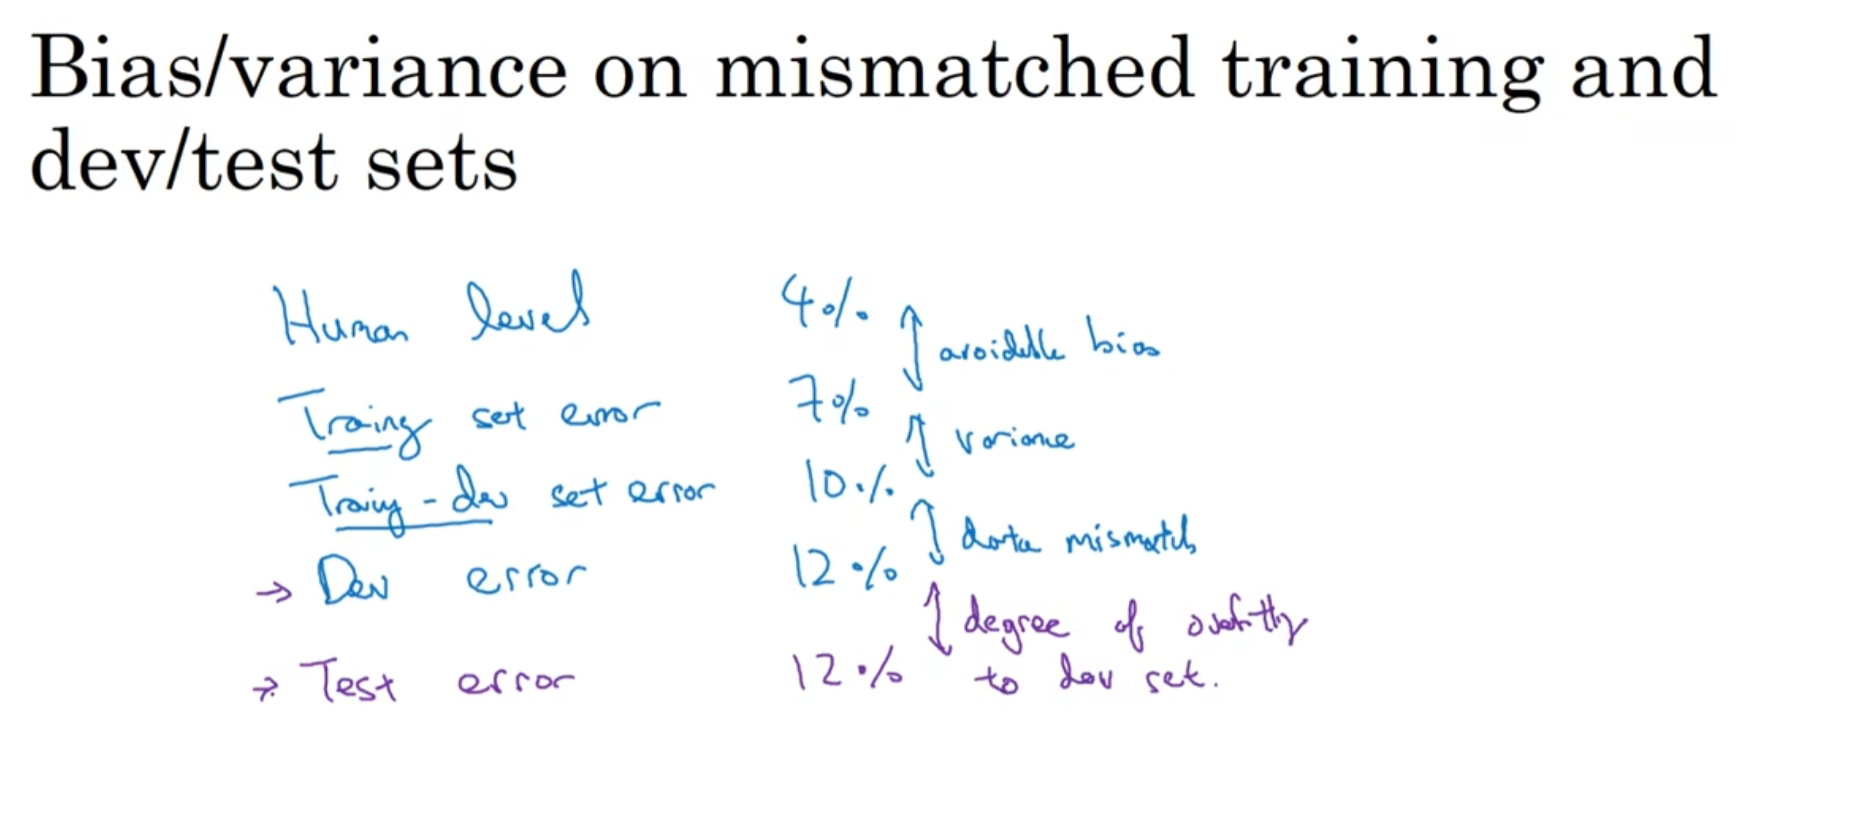 Bias/variance on mismatched training and
dev/test sets
Human level 4%
avoidable bias
Training set error 7%
variance
Training-dev set error 10%
data mismatch
Dev error 12%
degree of overfitting
→ Test error 12% to dev set.